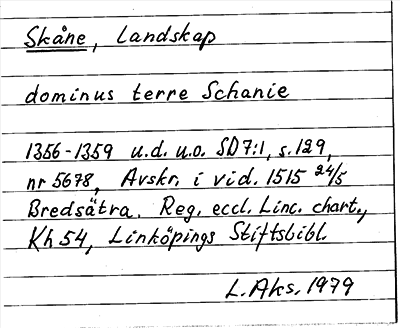 Skåne, Landskap
dominus terre Schanie
1356-1359 u.d. u.o. SD7:1, s.129,
nr 5678, Avskr. i vid. 1515 24/5
Bredsätra. Reg. eccl. Linc. chart.,
Kh 54, Linköpings Stiftsbibl.
L.Aks. 1979